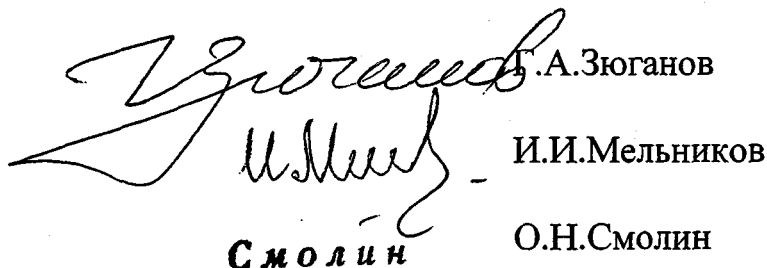 Зюганов Г.А.Зюганов
И.И.Мельников
Смолин О.Н.Смолин